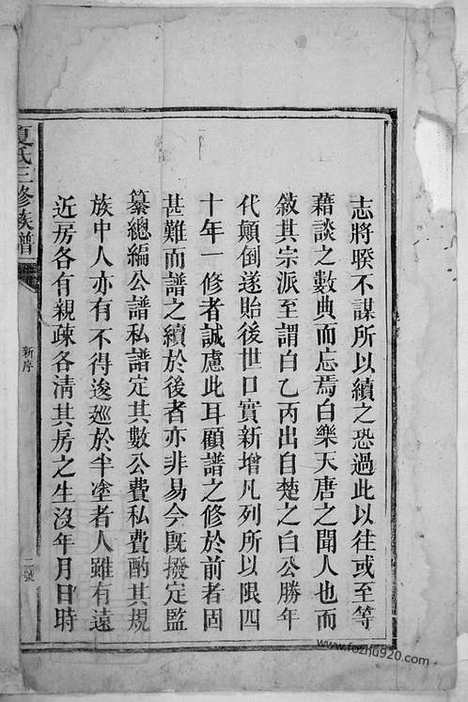 志將暌不謀所以續之恐過此以往或至等
藉談之數典而忘焉白樂天唐之聞人也而
敘其宗派至謂白乙丙出自楚之白公勝年
代顛倒遂貽後世口實新增凡列所以限四
十年一修者誠慮此耳顧譜之修於前者固
甚難而譜之續於後者亦非易今旣撥定監
纂總編公譜私譜定其數公費私費酌其規
族中人亦有不得逡廵於半塗者人雖有遠
近房各有親疎各清其房之生沒年月日時
夏氏三修族譜
新序
二號
www.fozhu920.com